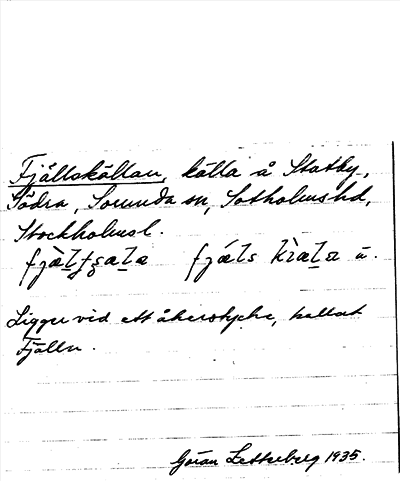 Fjällskällan, källa å Statby,
Södra, Sorunda sn, Sotholms hd,
Stockholms l.
Ligger vid ett åkerstycke, kallat
Fjälln.
Göran Zetterberg 1935.